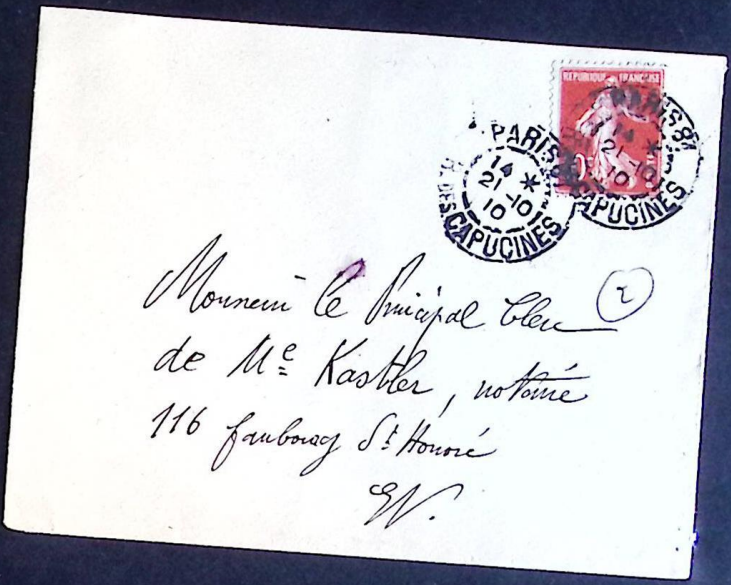 REPUBLIQUE FRANÇAISE
PARIS 8
14 *
21 -10
10
BD. DES CAPUCINES
PARIS 8
14 *
21 -10
10
CAPUCINES
Monsieur le Principal Clerc
2
de Me Kastler, notaire
116 faubourg St Honoré
EV.